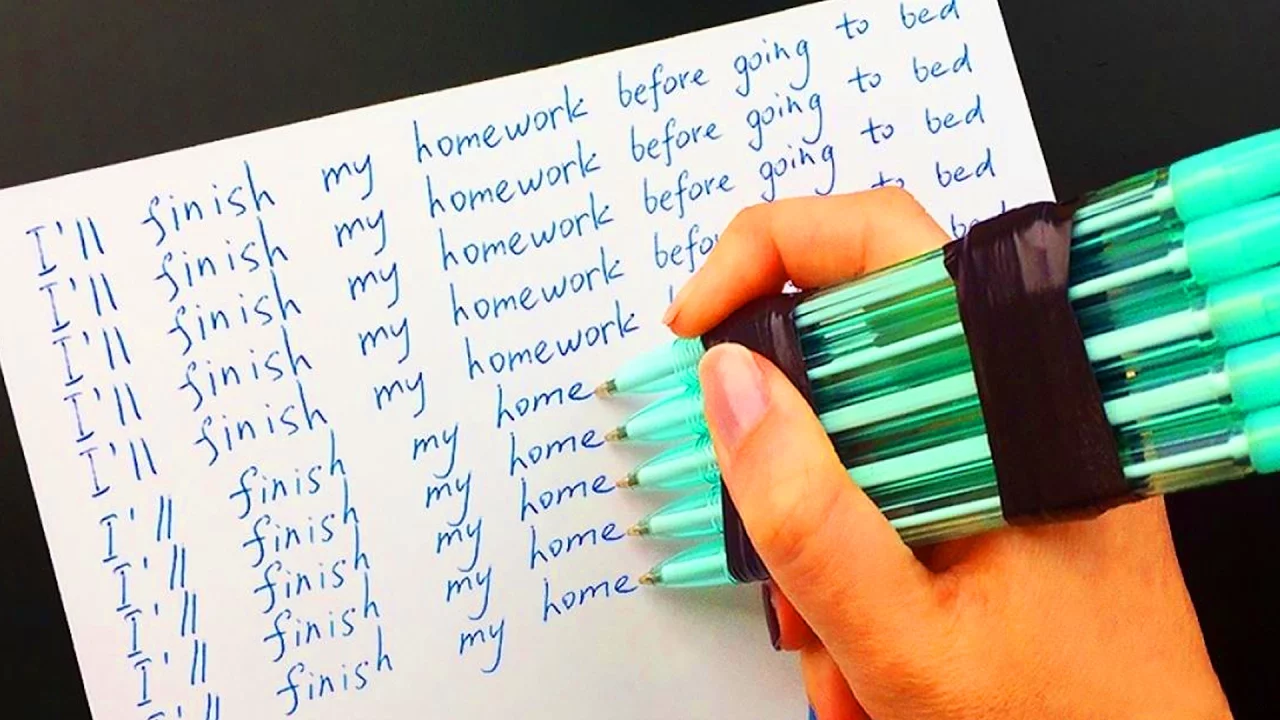 I'll finish my homework before going to bed
I'll finish my homework before going to bed
I'll finish my homework before going to bed
I'll finish my homework befo to bed
I'll finish my homework
I'll finish my home
I'll finish my home
I'll finish my home
I'll finish my home
I'll finish my home